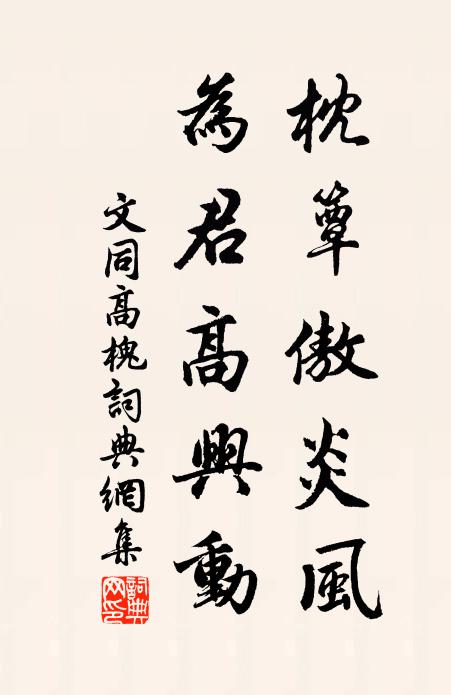 枕簟傲炎風
為君高興動
文同高槐詞典網集
詞典网印